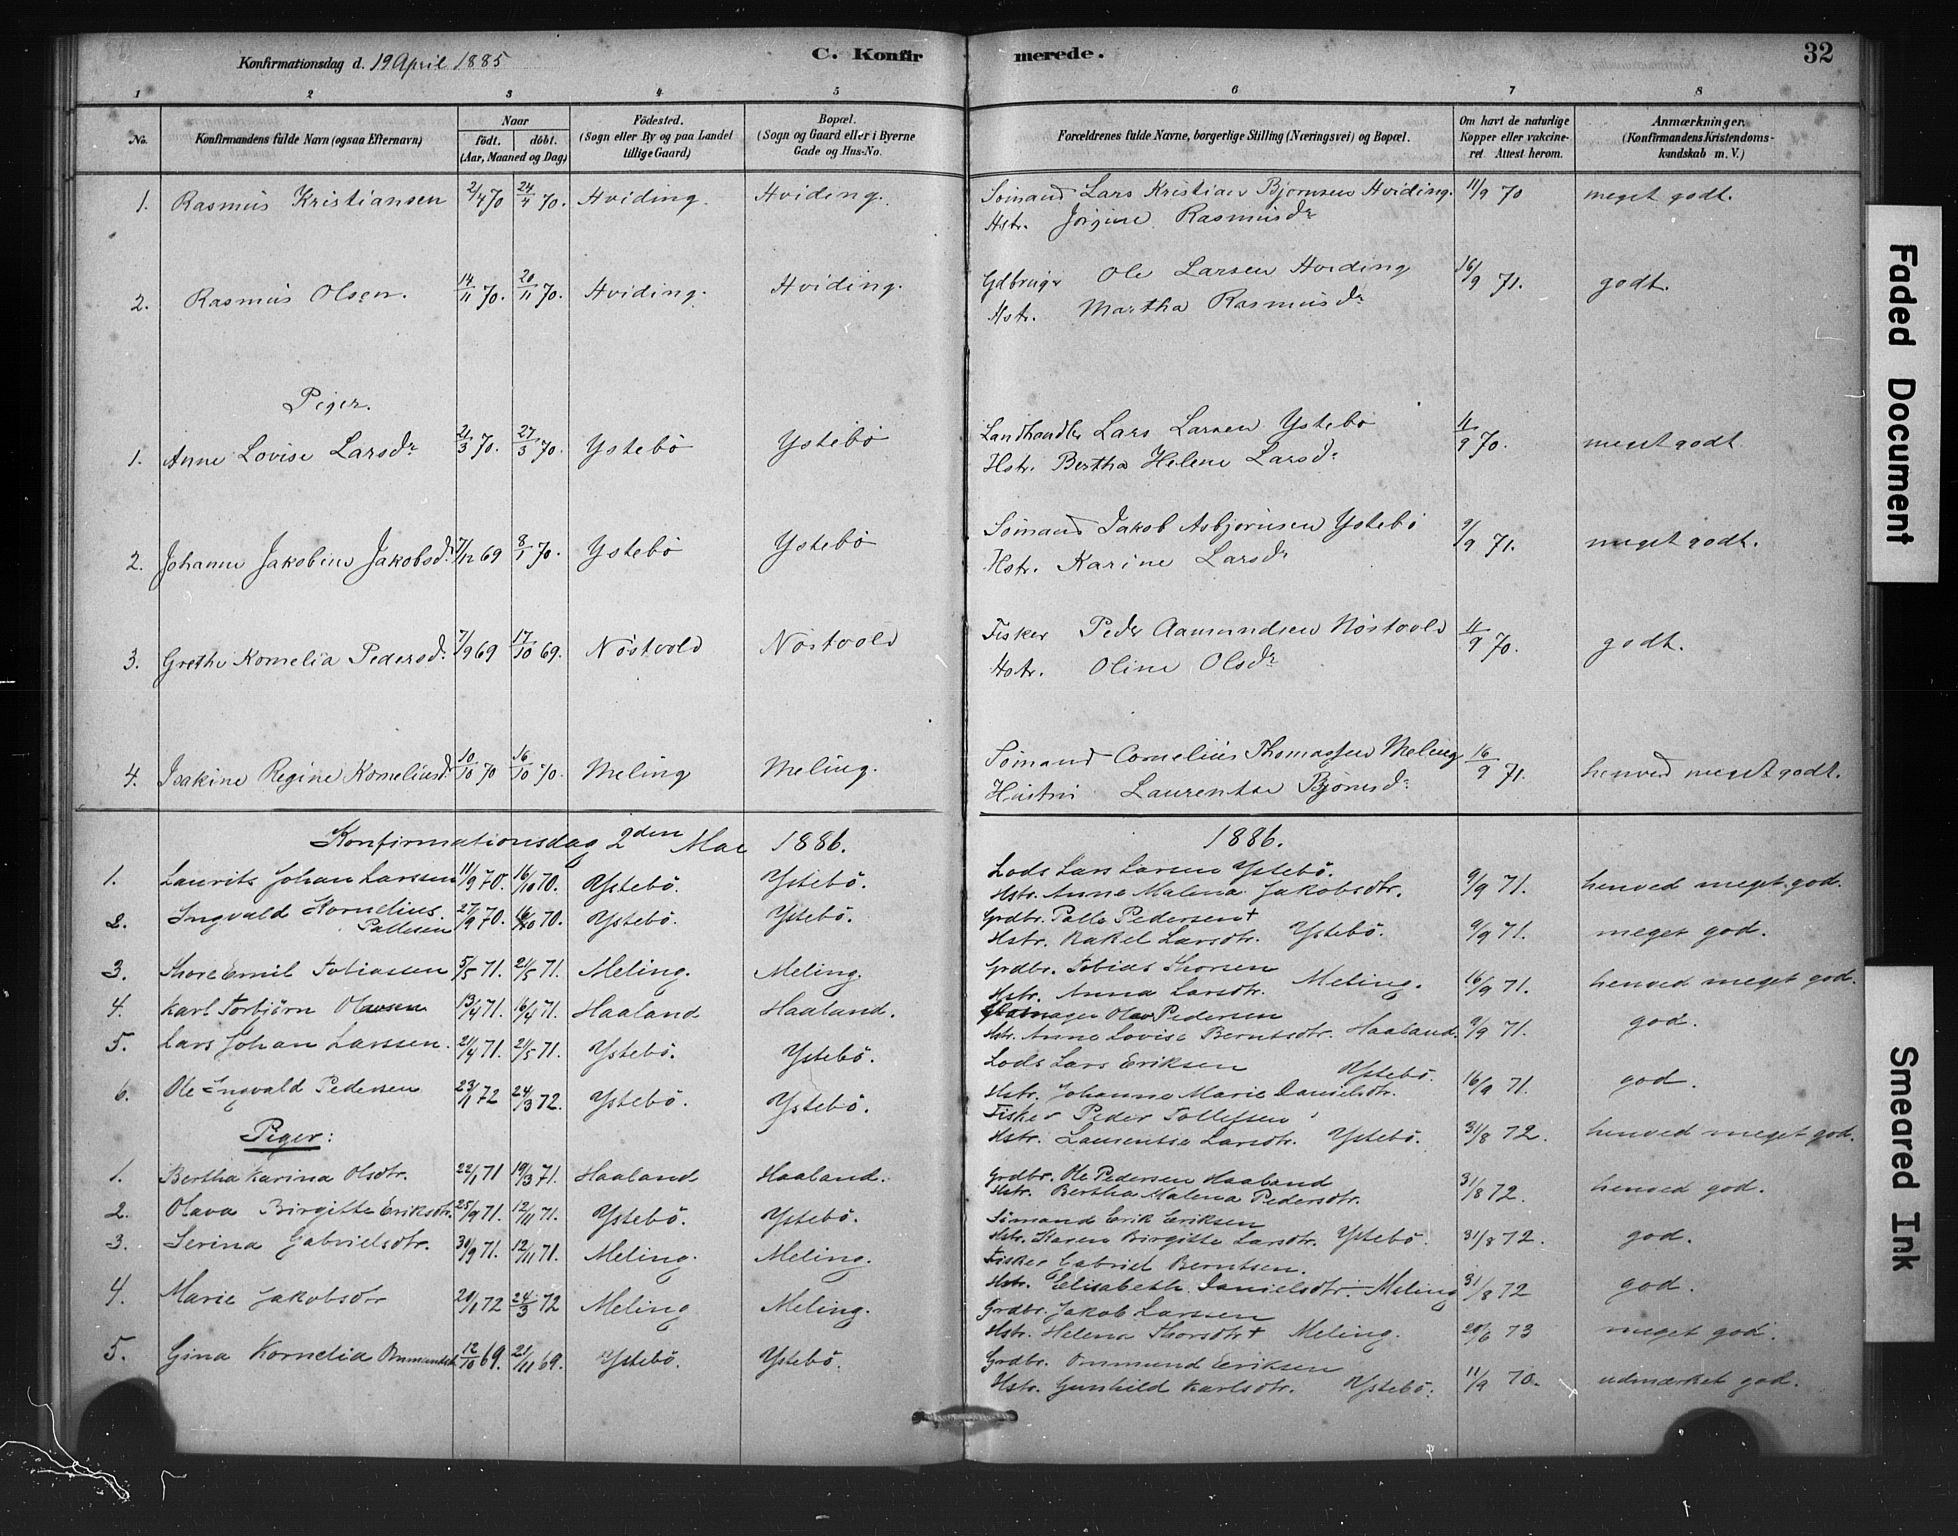 Konfirmationsdag d. 19 April 1885
C. Konfirmerede.
32
1 2 3 4 5 6 7 8
No. Konfirmandens fulde Navn (ogsaa Efternavn) Naar födt. döbt. (Aar, Maaned og Dag) Födested. (Sogn eller By og paa Landet tillige Gaard) Bopæl. (Sogn og Gaard eller i Byerne Gade og Hus-No. Forældrenes fulde Navne, borgerlige Stilling (Næringsvei) og Bopæl. Om havt de naturlige Kopper eller vakcineret. Attest herom. Anmærkninger. (Konfirmandens Kristendomskundskab m. V.)
1. Rasmus Kristiansen 2/4 70 24/4 70. Hviding. Hviding. Sömand Lars Kristian Bjornsen Hviding. 11/9 70 meget godt.
Hstr. Jörgine Rasmusdr
2. Rasmus Olsen. 14/11 70. 20/11 70. Hviding. Hviding. Gdbruger Ole Larsen Hviding 16/9 71. godt.
Hstr. Martha Rasmusdr
Piger.
1. Anne Lovise Larsdr 21/3 70. 27/3 70. Ystebö Ystebö Landhandler Lars Larsen Ystebö 11/9 70. meget godt
Hstr. Bertha Helene Larsdr
2. Johanne Jakobine Jakobsdr 7/12 69 8/1 70. Ystebö Ystebö Sömand Jakob Asbjörnsen Ystebö 9/9 71. meget godt.
Hstr. Karine Larsdr
3. Grethe Kornelia Pedersdr. 7/9 69 17/10 69. Nöstvold Nöstvold Fisker Peder Aamundsen Nöstvold 11/9 70. godt.
Hstr. Oline Olsdr
4. Isakine Regine Korneliusdr 10/10 70 16/10 70. Meling Meling. Sömand Cornelius Thomassen Meling 16/9 71. henved meget godt.
Hustru Laurentse Björnsdr
Konfirmationsdag 2den Mai 1886. 1886.
1. Laurits Johan Larssen 11/9 70. 16/10 70. Ystebö. Ystebö. Lods Lars Larsen Ystebö. 9/9 71. henved meget god.
Hstr. Anna Malena Jakobsdtr.
2. Ingvald Kornelius Pallesen 27/9 70. 16/10 70. Ystebö. Ystebö. Grdbr. Palle Pedersen + 9/9 71. meget god.
Hstr. Rakel Larsdtr. Ystebö.
3. Thore Emil Tobiassen 5/5 71. 21/5 71. Meling. Meling. Grdbr. Tobias Thorsen 16/9 71. henved meget god.
Hstr. Anna Larsdtr. Meling.
4. Karl Torbjörn Olavsen 13/4 71. 16/4 71. Haaland Haaland. Olav Pedersen 9/9 71. god.
Hstr. Anne Lovise Berntsdtr. Haaland.
5. Lars Johan Larssen. 21/4 71. 21/5 71. Ystebö. Ystebö. Lods Lars Eriksen Ystebö. 16/9 71. god.
Hstr. Johanne Marie Danielsdtr.
6. Ole Ingvald Pedersen 23/1 72 24/3 72. Ystebö. Ystebö. Fisker Peder Tollefsen 31/8 72. henved meget god.
Hstr. Laurentse Larsdtr. Ystebö.
Piger:
1. Bertha Karina Olsdtr. 22/1 71 19/3 71. Haaland Haaland. Grdbr. Ole Pedersen Haaland 31/8 72. henved god.
Hstr. Bertha Malena Pedersdtr.
2. Olava Birgitte Eriksdtr. 25/9 71. 12/11 71. Ystebö. Ystebö. Sömand Erik Eriksen 31/8 72. god.
Hstr. Karen Birgitte Larsdtr. Ystebö.
3. Serina Gabrielsdtr. 30/9 71. 12/11 71. Meling. Meling. Fisker Gabriel Berntsen. 31/8 72 god.
Hstr. Elisabeth Danielsdtr. Meling
4. Marie Jakobsdtr 20/1 72 24/3 72 Meling Meling. Grdbr. Jakob Larssen 20/6 73 meget god.
Hstr. Helena Thorsdtr + Meling.
5. Gina Kornelia Ommundsdtr. 12/10 69. 21/11 69. Ystebö. Ystebö. Grdbr. Ommund Eriksen 11/9 70. udmærket god.
Hstr. Gunhild Karlsdtr. Ystebö.
Faded Document
Smeared Ink